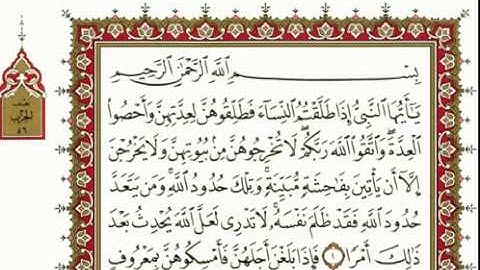 نصف
الحزب
٥٦
بِسْمِ اللَّهِ الرَّحْمَٰنِ الرَّحِيمِ
يَا أَيُّهَا النَّبِيُّ إِذَا طَلَّقْتُمُ النِّسَاءَ فَطَلِّقُوهُنَّ لِعِدَّتِهِنَّ وَأَحْصُوا
الْعِدَّةَ وَاتَّقُوا اللَّهَ رَبَّكُمْ لَا تُخْرِجُوهُنَّ مِن بُيُوتِهِنَّ وَلَا يَخْرُجْنَ
إِلَّا أَن يَأْتِينَ بِفَاحِشَةٍ مُّبَيِّنَةٍ وَتِلْكَ حُدُودُ اللَّهِ وَمَن يَتَعَدَّ
حُدُودَ اللَّهِ فَقَدْ ظَلَمَ نَفْسَهُ لَا تَدْرِي لَعَلَّ اللَّهَ يُحْدِثُ بَعْدَ
ذَٰلِكَ أَمْرًا ١ فَإِذَا بَلَغْنَ أَجَلَهُنَّ فَأَمْسِكُوهُنَّ بِمَعْرُوفٍ